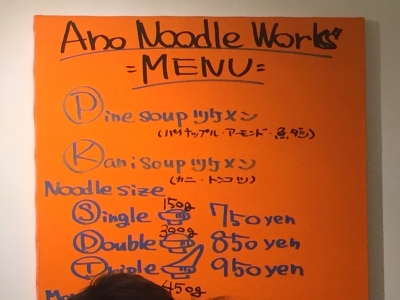 Ano Noodle Works
=MENU=
Pine soup ツケメン
(パイナップル・アーモンド・魚ダシ)
Kani Soup ツケメン
(カニ・トンコツ)
Noodle size
150g
Single 750yen
300g
Double 850yen
Triple 950yen
450g